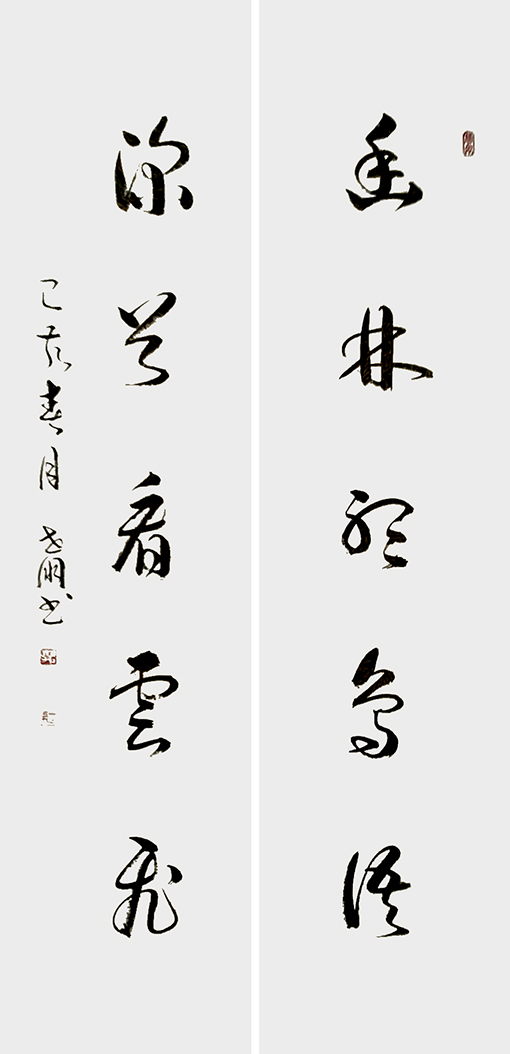 幽林聽鳥語
深谷看雲飛
己亥春月 书